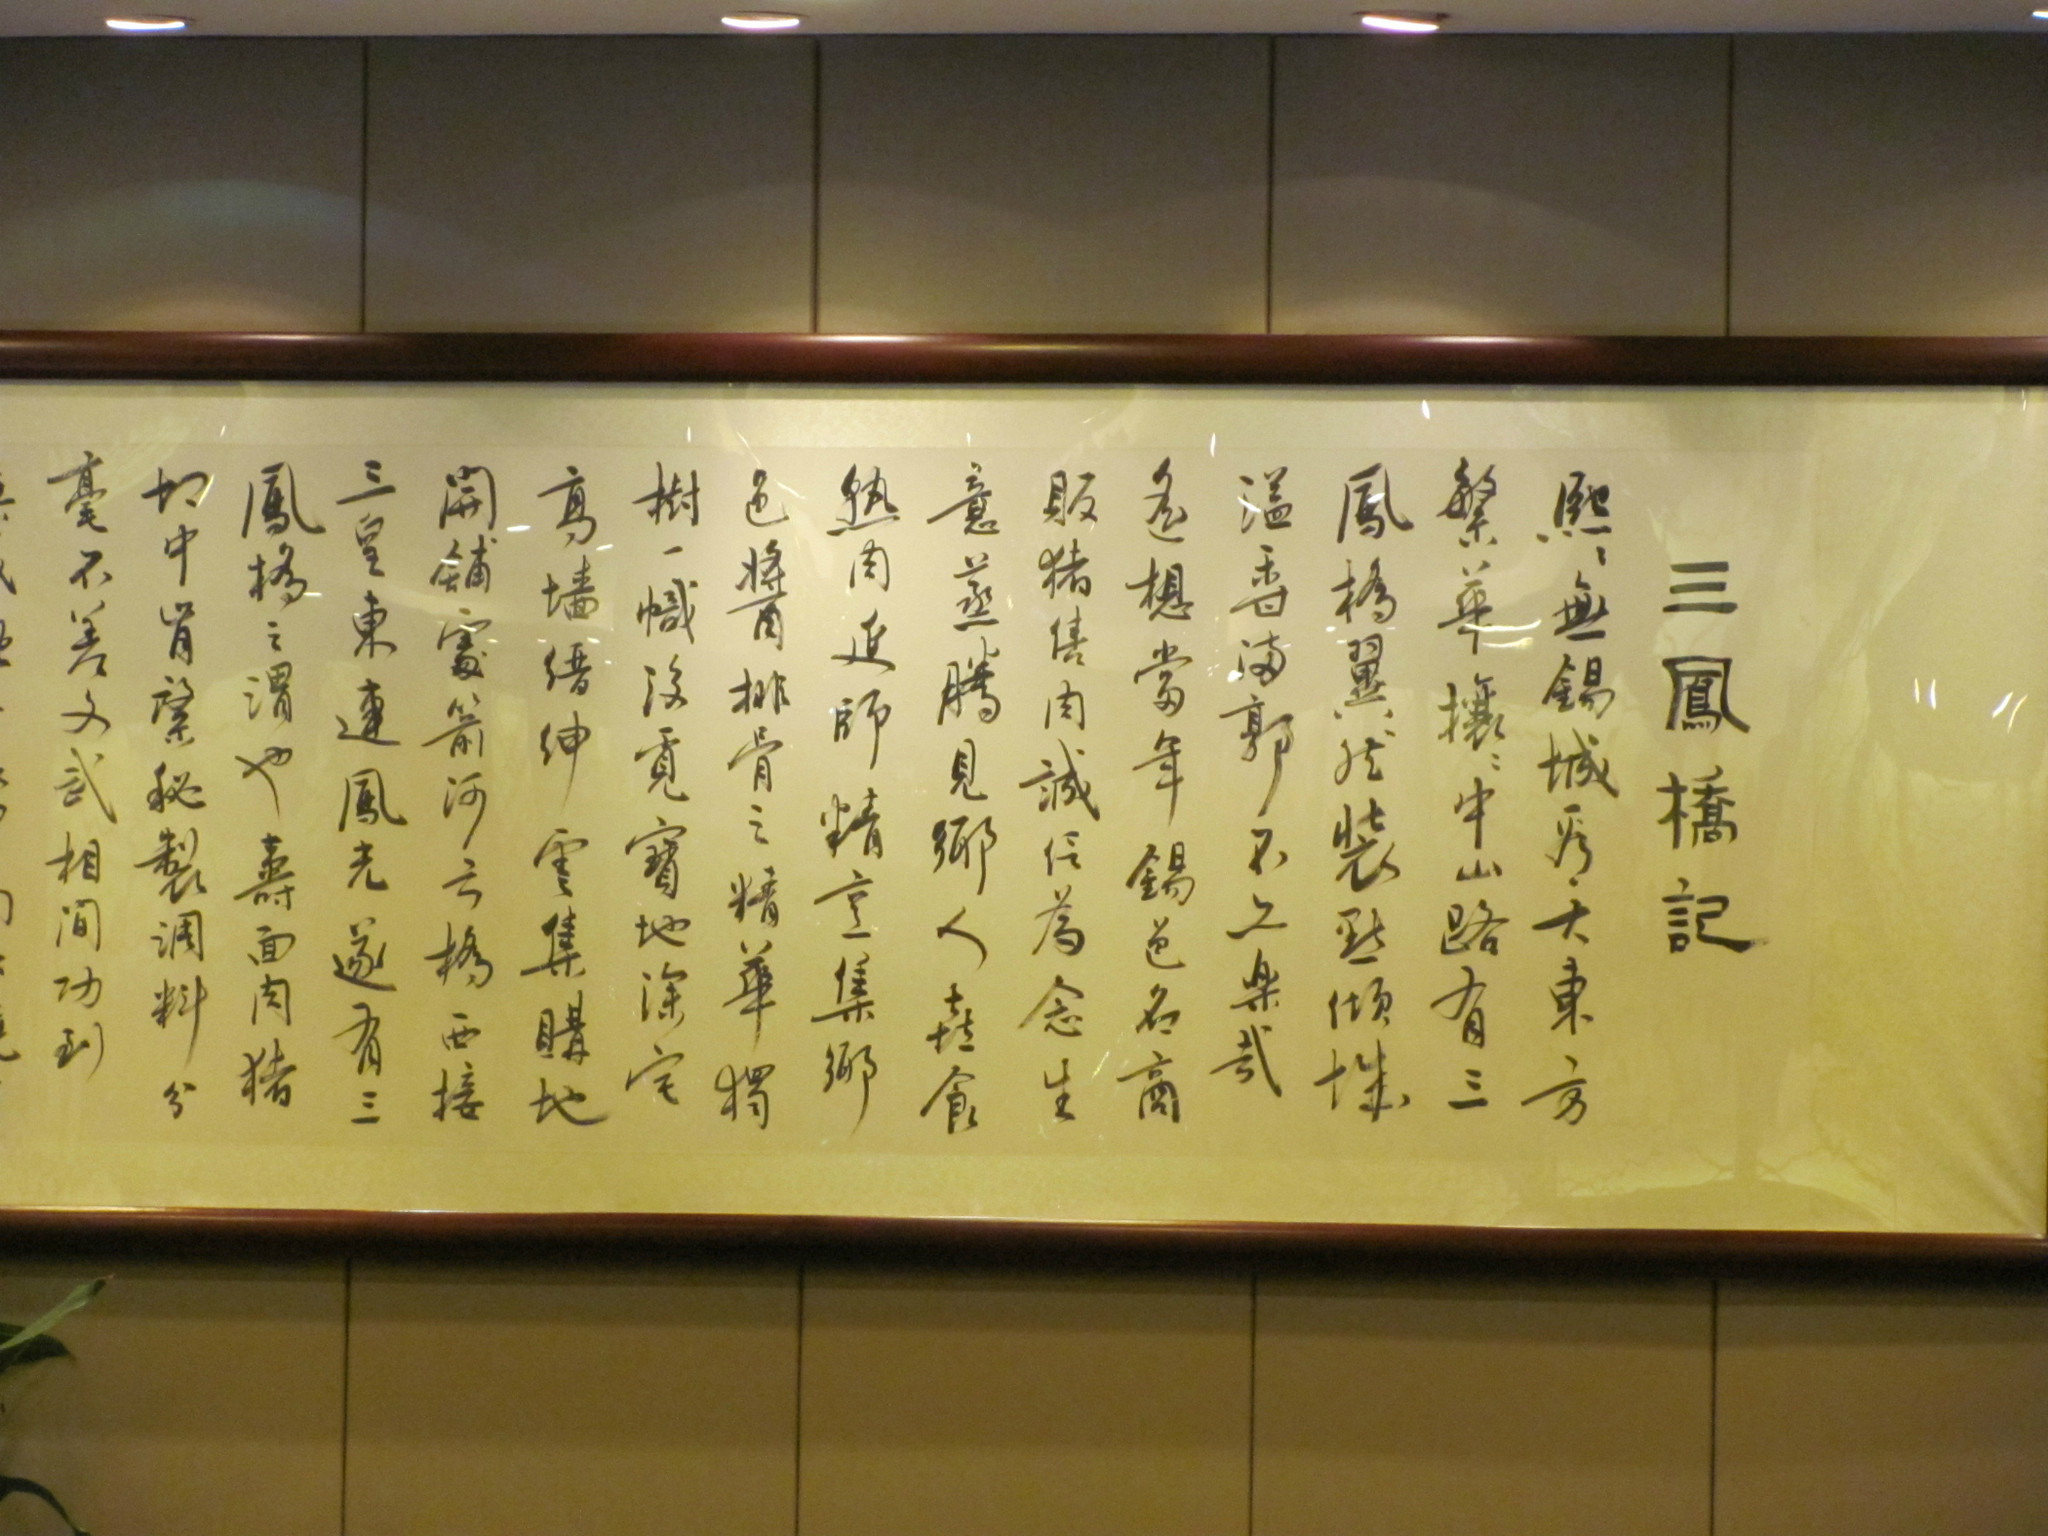 三鳳橋記
熙〻無錫城 天東方
繁華攘〻中山路有三
鳳橋翼然裝點傾城
溢香滿郭不亦樂哉
遙想當年錫邑名商
販豬售肉誠信為念生
意蒸騰見鄉人喜食
熟肉延師精烹集鄉
邑醬排骨之精華獨
樹一幟後覓寶地深宅
高墻縉紳雲集購地
開鋪處箭河云橋西接
三皇東連鳳光遂有三
鳳橋之謂也壽面肉豬
切中肯綮秘製調料分
毫不差文武相間功到